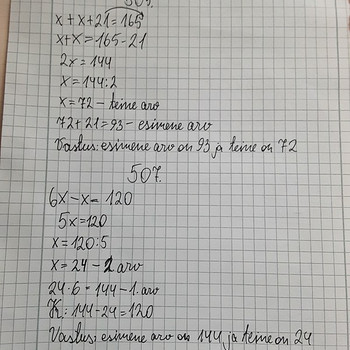 x+x+21=165
x+x=165-21
2x=144
x=144:2
x=72 - teine arv
72+21=93 - esimene arv
Vastus: esimene arv on 93 ja teine on 72
507.
6x-x=120
5x=120
x=120:5
x=24 - 2 arv
24·6=144 - 1. arv
K: 144-24=120
Vastus: esimene arv on 144 ja teine on 24